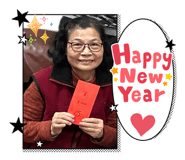 Happy
New
Year